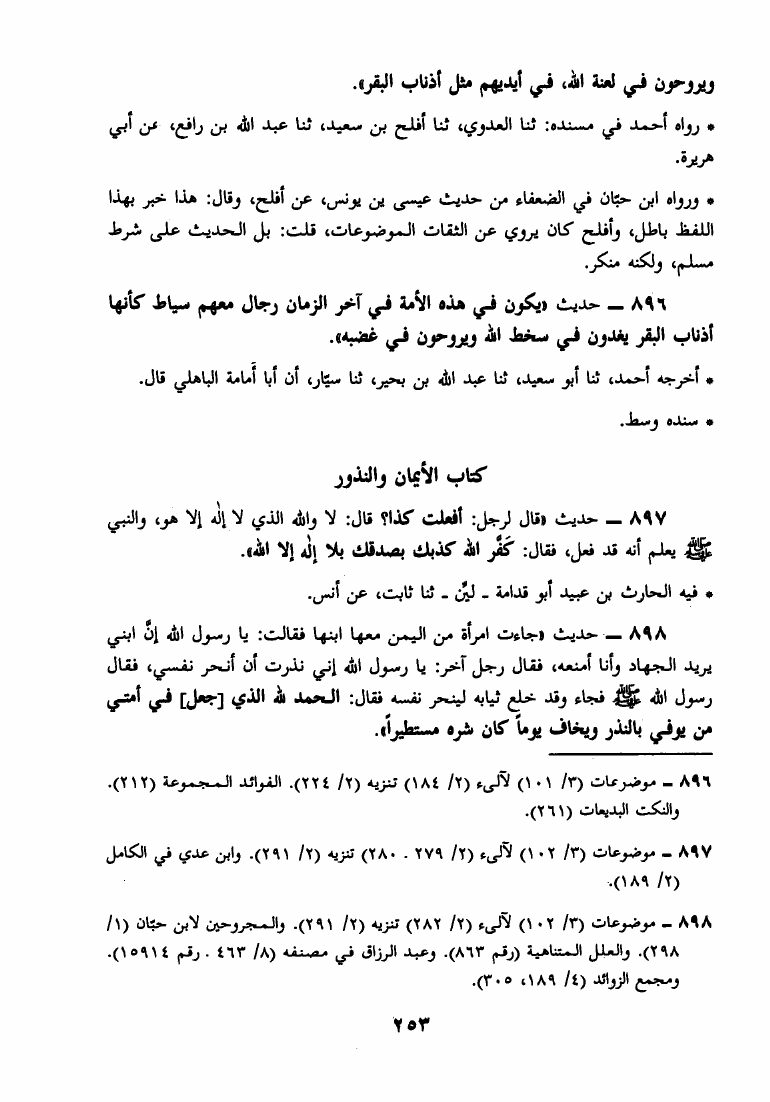 ويروحون في لعنة الله، في أيديهم مثل أذناب البقر».
* رواه أحمد في مسنده: ثنا العدوي، ثنا أفلح بن سعيد، ثنا عبد الله بن رافع، عن أبي
هريرة.
* ورواه ابن حبّان في الضعفاء من حديث عيسى ين يونس، عن أفلح، وقال: هذا خبر بهذا
اللفظ باطل، وأفلح كان يروي عن الثقات الموضوعات، قلت: بل الحديث على شرط
مسلم، ولكنه منكر.
٨٩٦ — حديث «يكون في هذه الأمة في آخر الزمان رجال معهم سياط كأنها
أذناب البقر يغدون في سخط الله ويروحون في غضبه».
* أخرجه أحمد، ثنا أبو سعيد، ثنا عبد الله بن بحير، ثنا سيّار، أن أبا أُمامة الباهلي قال.
* سنده وسط.
كتاب الأيمان والنذور
٨٩٧ — حديث «قال لرجل: أفعلت كذا؟ قال: لا والله الذي لا إلٰه إلا هو، والنبي
ﷺ يعلم أنه قد فعل، فقال: كَفَّر الله كذبك بصدقك بلا إلٰه إلا الله».
* فيه الحارث بن عبيد أبو قدامة - ليِّن - ثنا ثابت، عن أنس.
٨٩٨ — حديث «جاءت امرأة من اليمن معها ابنها فقالت: يا رسول الله إنَّ ابني
يريد الجهاد وأنا أمنعه، فقال رجل آخر: يا رسول الله إني نذرت أن أنحر نفسي، فقال
رسول الله ﷺ فجاء وقد خلع ثيابه لينحر نفسه فقال: الحمد لله الذي [جعل] في أمتي
من يوفي بالنذر ويخاف يوماً كان شره مستطيراً».
٨٩٦ - موضوعات (٣/ ١٠١) لآلىء (٢/ ١٨٤) تنزيه (٢/ ٢٢٤). الفوائد المجموعة (٢١٢).
والنكت البديعات (٢٦١).
٨٩٧ - موضوعات (٣/ ١٠٢) لآلىء (٢/ ٢٧٩ . ٢٨٠) تنزيه (٢/ ٢٩١). وابن عدي في الكامل
(٢/ ١٨٩).
٨٩٨ - موضوعات (٣/ ١٠٢) لآلىء (٢/ ٢٨٢) تنزيه (٢/ ٢٩١). والمجروحين لابن حبّان (١/
٢٩٨). والعلل المتناهية (رقم ٨٦٣). وعبد الرزاق في مصنفه (٨/ ٤٦٣ . رقم ١٥٩١٤).
ومجمع الزوائد (٤/ ١٨٩، ٣٠٥).
٢٥٣